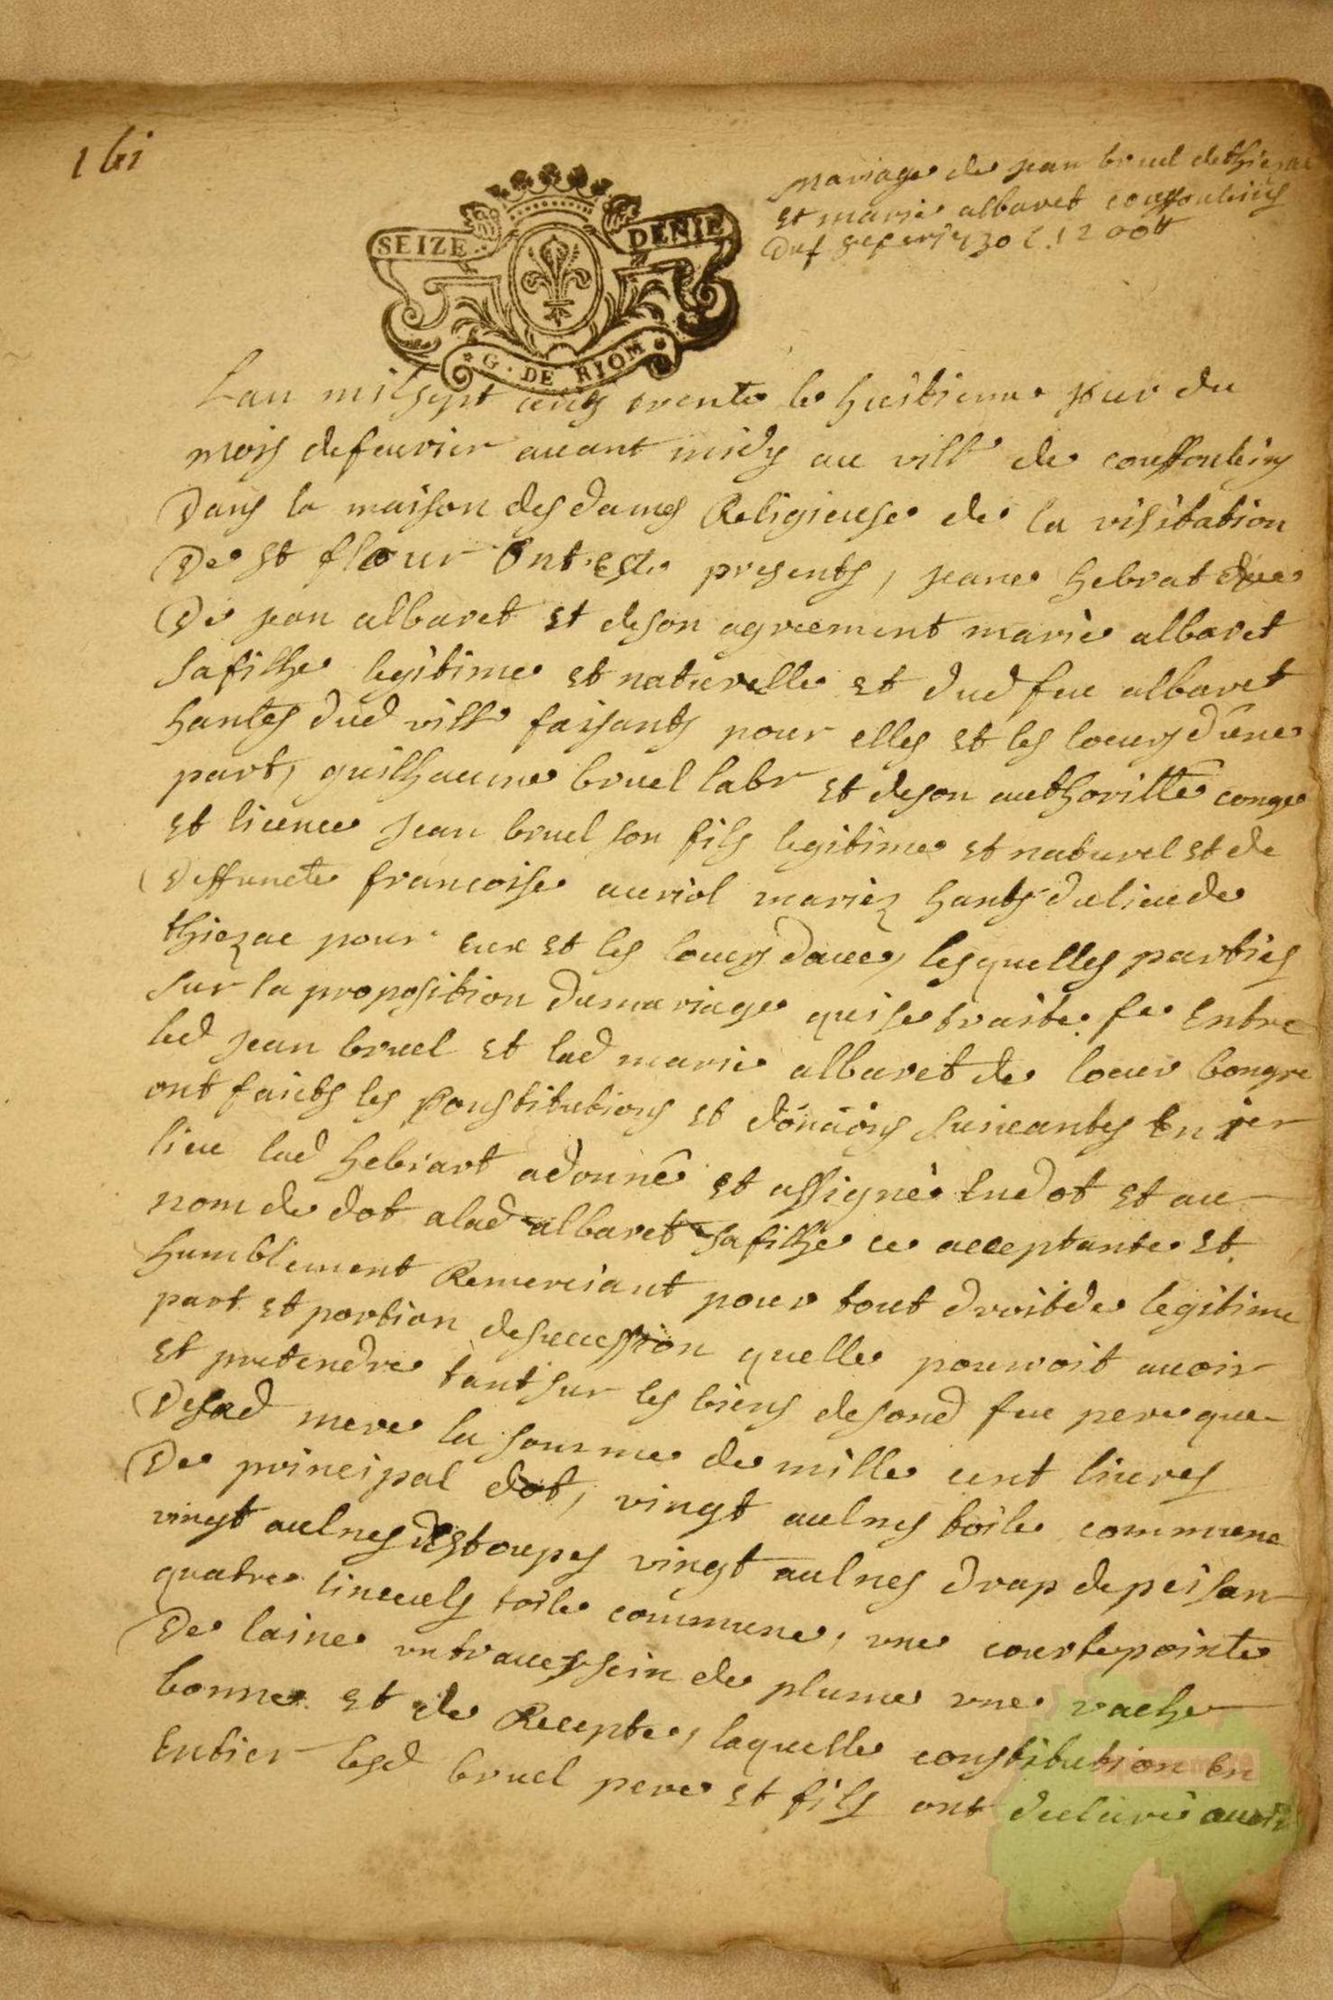 161
mariage de jean bruel dethiezac
et marie albaret couffouleins
du 8 fevrier 1730 c. 1200tt
SEIZE DENIE
G. DE RIOM
Lan mil sept cens trente le huitieme jour du
mois defeurier auant midy au vill de couffouleins
Dans la maison des dames Religieuse de la visitation
De St flour ont este presents, jeane hebrat
De jean albaret et deson agreement marie albaret
safilhe legitime et naturelle et dud feu albaret
hants dud vill faisants pour elles et les loeurs dune
part, guilhaume bruel labr et deson authoritté conge
et licence jean bruel son fils legitime et naturel et de
Deffuncte francoise auriol mariez hants dulieude
thiezac pour eux et les loeurs dauce, lesquelles parties
sur la proposition dumariage quise traite fe Entre
led jean bruel et lad marie albaret de loeur bongre
ont faicts les Constitutions et donaōns suiuantes En 1er
lieu lad hebrart adonné et assigné Endot et au
nom de dot alad albaret safilhe ce acceptante et
humblement Remerciant pour tout droitde legitime
part et portion desuccession quelle pouuoit auoir
et pretendre tantsur les biens desond feu pere que
Desad mere la somme de mille cent liures
De principal dot, vingt aulnes toile commune
vingt aulnes destoupes vingt aulnes drap depeisan
quatre linceuls toile commune, vne courtepointe
De laine vntrauersein de plume vne vache
bonne et de Recepte, laquelle constitution En
Entier lesd bruel pere et fils ont declaré auoir